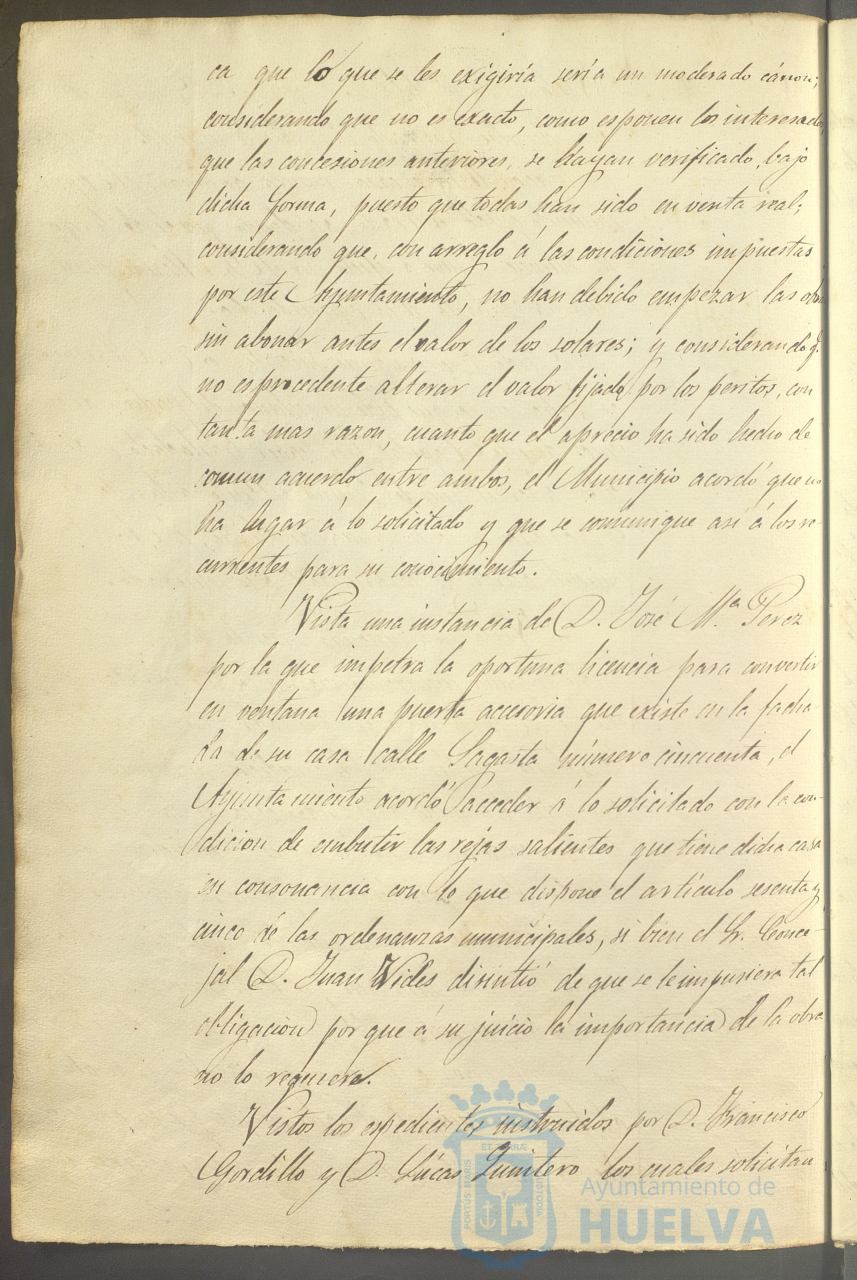 ca que lo que se les exigiría sería un moderado cánon;
considerando que no es exacto, como esponen los interesados
que las concesiones anteriores, se hayan verificado, bajo
dicha forma, puesto que todas han sido en venta real;
considerando que, con arreglo á las condiciones impuestas
por este Ayuntamiento, no han debido empezar las obras
sin abonar antes el valor de los solares; y considerando q.
no es procedente alterar el valor fijado por los peritos, con
tanta mas razon, cuanto que el aprecio ha sido hecho de
comun acuerdo entre ambos, el Municipio acordó que no
ha lugar á lo solicitado y que se comunique asi á los re-
currentes para su conocimiento.
Vista una instancia de D. José M.ª Perez
por la que impetra la oportuna licencia para convertir
en ventana una puerta accesoria que existe en la facha-
da de su casa calle Sagasta número cincuenta, el
Ayuntamiento acordó acceder á lo solicitado con la con-
dicion de embutir las rejas salientes que tiene dicha casa
en consonancia con lo que dispone el artículo sesenta y
cinco de las ordenanzas municipales, si bien el Sr. Conce-
jal D. Juan Vides disintió de que se le impusiera tal
obligacion por que á su juicio la importancia de la obra
no lo requiere.
Vistos los espedientes instruidos por D. Francisco
Gordillo y D. Lúcas Quintero los cuales solicitan
Ayuntamiento de
HUELVA